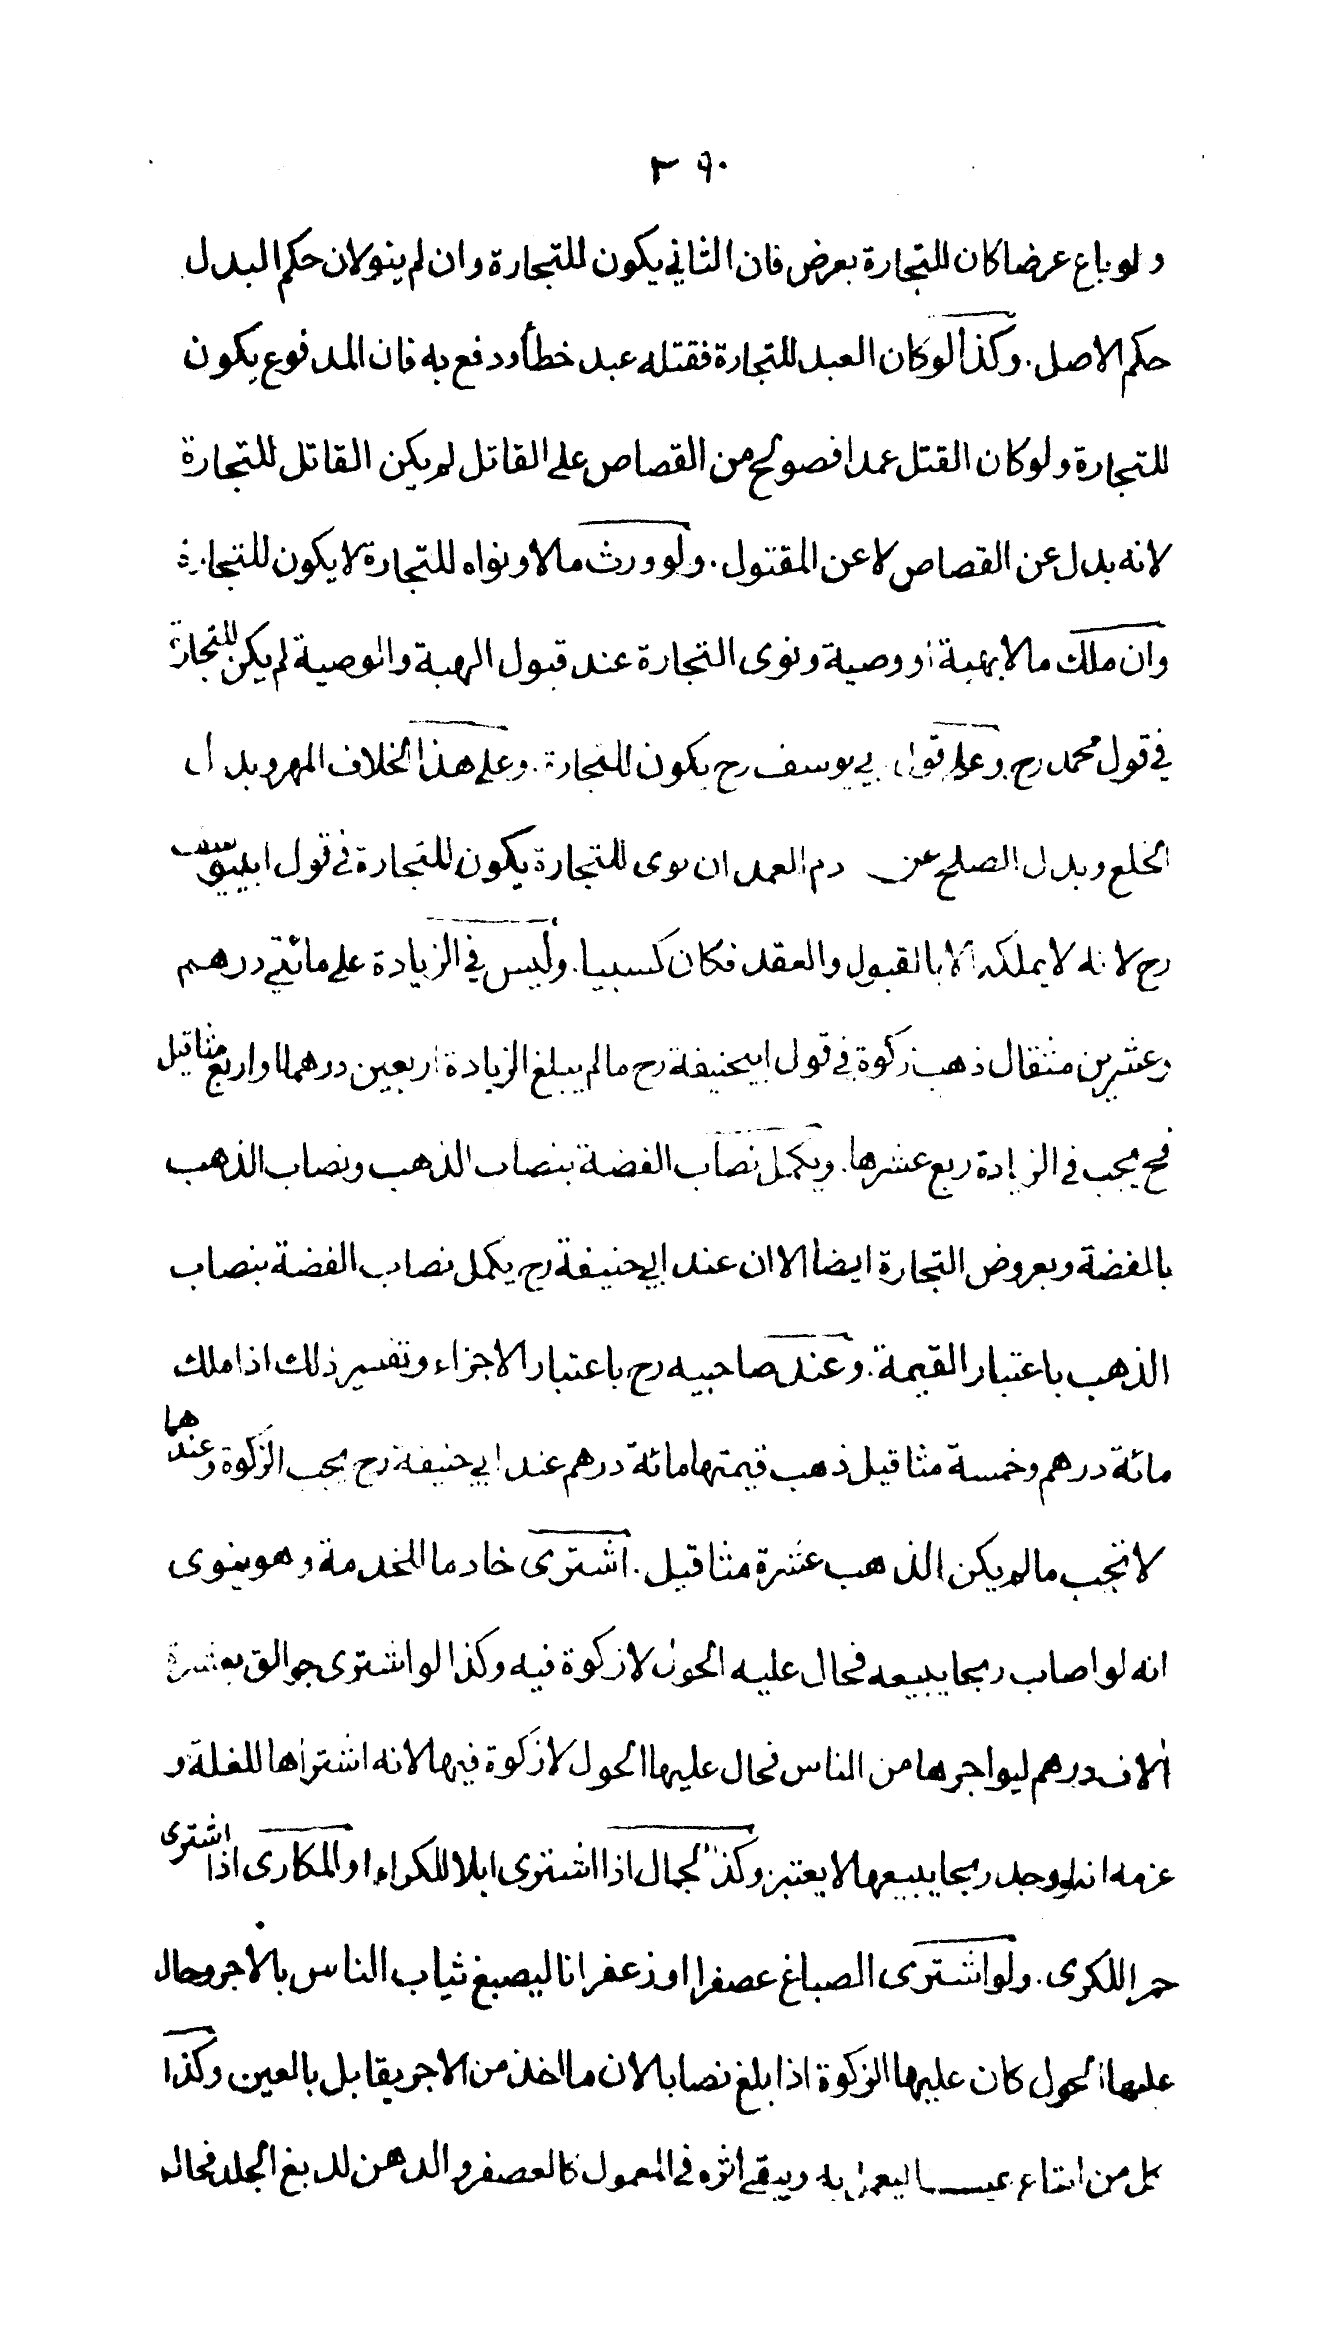 ٢٩٠
ولو باع عرضا كان للتجارة بعرض فان الثاني يكون للتجارة وان لم ينو لان حكم البدل
حكم الاصل. وكذا لو كان العبد للتجارة فقتله عبد خطأ ودفع به فان المدفوع يكون
للتجارة ولو كان القتل عمدا فصولح من القصاص على القاتل لم يكن القاتل للتجارة
لانه بدل عن القصاص لا عن المقتول. ولو ورث مالا ونواه للتجارة لا يكون للتجارة
وان ملك مالا بهبة او وصية ونوى التجارة عند قبول الهبة والوصية لم يكن للتجارة
في قول محمد رح وعلى قول ابي يوسف رح يكون للتجارة. وعلى هذا الخلاف المهر وبدل
الخلع وبدل الصلح عن دم العمد ان نوى للتجارة يكون للتجارة في قول ابييوسف
رح لانه لا يملكه الا بالقبول والعقد فكان كسبيا. وليس في الزيادة على مائتي درهم
وعشرين مثقال ذهب زكوة في قول ابيحنيفة رح ما لم يبلغ الزيادة اربعين درهما او اربع مثاقيل
فح يجب في الزيادة ربع عشرها. ويكمل نصاب الفضة بنصاب الذهب ونصاب الذهب
بالفضة وبعروض التجارة ايضا الا ان عند ابي حنيفة رح يكمل نصاب الفضة بنصاب
الذهب باعتبار القيمة. وعند صاحبيه رح باعتبار الاجزاء وتفسير ذلك اذا ملك
مائة درهم وخمسة مثاقيل ذهب قيمتها مائة درهم عند ابي حنيفة رح يجب الزكوة وعندهما
لا تجب ما لم يكن الذهب عشرة مثاقيل. اشترى خادما للخدمة وهو ينوى
انه لو اصاب ربحا يبيعه فحال عليه الحول لا زكوة فيه وكذا لو اشترى جوالق بعشرة
ألاف درهم ليواجرها من الناس فحال عليها الحول لا زكوة فيها لانه اشتراها للغلة و
عزمه انه لو وجد ربحا يبيعها لا يعتبر وكذا الجمال اذا اشترى ابلا للكراء او المكارى اذا اشترى
حمر اللكرى. ولو اشترى الصباغ عصفرا او زعفرانا ليصبغ ثياب الناس بالاجر وحال
عليها الحول كان عليها الزكوة اذا بلغ نصابا لان ما اخذ من الاجر يقابل بالعين وكذا
كل من ابتاع عينا ليعمل به ويبقى اثره في المعمول كالعصفر والدهن لدبغ الجلد فحال